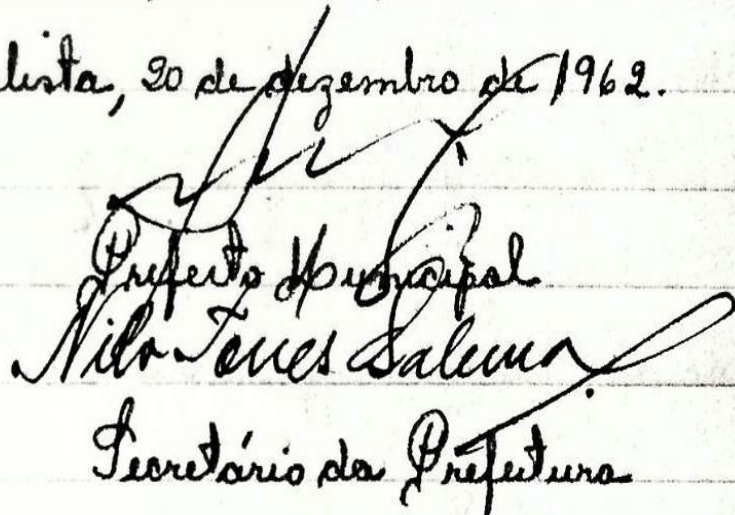 lista, 20 de dezembro de 1962.
Prefeito Municipal
Nilo Torres Salema
Secretário da Prefeitura